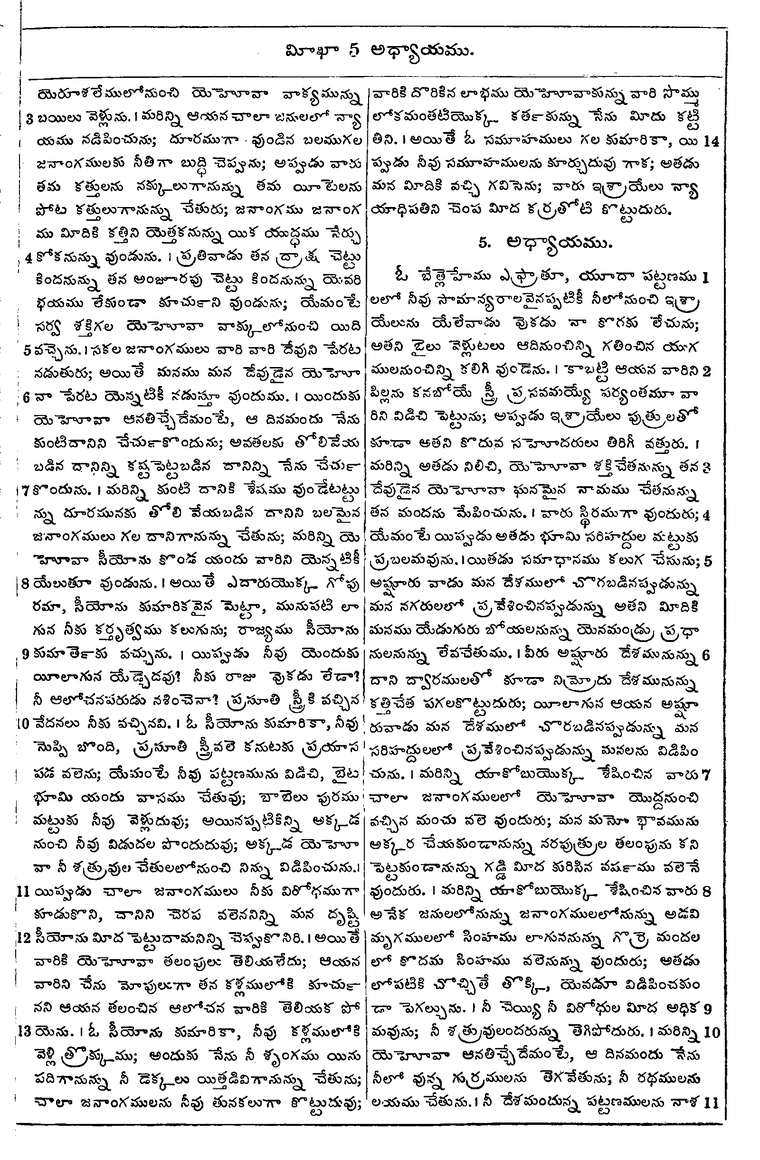 మిాఖా 5 అధ్యాయము.
యెరూశలేములోనుంచి యెహోవా వాక్యమున్ను
3 బయిలు వెళ్లును. । మరిన్ని ఆయన చాలా జనులలో న్యా
యము నడిపించును; దూరముగా వుండిన బలముగల
జనాంగములకు నీతిగా బుద్ధి చెప్పును; అప్పుడు వారు
తమ కత్తులను నక్కులుగానున్ను తమ యీటెలను
పోట కత్తులుగానున్ను చేతురు; జనాంగము జనాంగ
ము మిాదికి కత్తిని యెత్తకనున్ను యిక యుద్ధము నేర్చు
4 కోకనున్ను వుండును. । ప్రతివాడు తన ద్రాక్ష చెట్టు
కిందనున్ను తన అంజూరపు చెట్టు కిందనున్ను యెవరి
భయము లేకుండా కూచుని వుండును; యేమంటే
సర్వ శక్తిగల యెహోవా వాక్కులోనుంచి యిది
5 వచ్చెను. । సకల జనాంగములు వారి వారి దేవుని పేరట
నడుతురు; అయితే మనము మన దేవుడైన యెహో
6 వా పేరట యెన్నటికీ నడుస్తూ వుందుము. । యిందుకు
యెహోవా ఆనతిచ్చేదేమంటే, ఆ దినమందు నేను
కుంటిదానిని చేర్చుకొందును; అవతలకు తోలివేయ
బడిన దానిన్ని కష్టపెట్టబడిన దానిన్ని నేను చేర్చు
7 కొందును. । మరిన్ని కుంటి దానికి శేషము వుండేటట్టు
న్ను దూరమునకు తోలి వేయబడిన దానిని బలమైన
జనాంగములు గల దానిగానున్ను చేతును; మరిన్ని యె
హోవా సీయోను కొండ యందు వారిని యెన్నటికీ
8 యేలుతూ వుండును. । అయితే ఎదారుయొక్క గోపు
రమా, సీయోను కుమారికవైన మెట్టా, మునుపటి లా
గున నీకు కర్తృత్వము కలుగును; రాజ్యము సీయోను
9 కుమార్తెకు వచ్చును. । యిప్పుడు నీవు యెందుకు
యీలాగున యేడ్చెదవు? నీకు రాజు వొకడు లేడా?
నీ ఆలోచనపరుడు నశించెనా? ప్రసూతి స్త్రీకి వచ్చిన
10 వేదనలు నీకు వచ్చినవి. । ఓ సీయోను కుమారికా, నీవు
నొప్పి బొంది, ప్రసూతి స్త్రీవలె కనుటకు ప్రయాస
పడ వలెను; యేమంటే నీవు పట్టణమును విడిచి, బైట
భూమి యందు వాసము చేతువు; బాబేలు పురము
మట్టుకు నీవు వెళ్లుదువు; అయినప్పటికిన్ని అక్కడ
నుంచి నీవు విడుదల పొందుదువు; అక్కడ యెహో
వా నీ శత్రువుల చేతులలోనుంచి నిన్ను విడిపించును. ।
11 యిప్పుడు చాలా జనాంగములు నీకు విరోధముగా
కూడుకొని, దానిని చెరప వలెననిన్ని మన దృష్టి
12 సీయోను మిాద పెట్టుదామనిన్ని చెప్పుకొనిరి. । అయితే
వారికి యెహోవా తలంపులు తెలియలేదు; ఆయన
వారిని చేను మోపులుగా తన కళ్లములోకి కూర్చు
నని ఆయన తలంచిన ఆలోచన వారికి తెలియక పో
13 యెను. । ఓ సీయోను కుమారికా, నీవు కళ్లములోకి
వెళ్లి త్రొక్కుము; అందుకు నేను నీ శృంగము యిను
పదిగానున్ను నీ డెక్కలు యిత్తడివిగానున్ను చేతును;
చాలా జనాంగములను నీవు తునకలుగా కొట్టుదువు;
వారికి దొరికిన లాభము యెహోవాకున్ను వారి సొమ్ము
లోకమంతటియొక్క కర్తకున్ను నేను మిాదు కట్టి
తిని. । అయితే ఓ సమూహములు గల కుమారికా, యి 14
ప్పుడు నీవు సమూహములను కూర్చుదువు గాక; అతడు
మన మిాదికి వచ్చి గవిసెను; వారు ఇశ్రాయేలు న్యా
యాధిపతిని చెంప మిాద కర్రతోటి కొట్టుదురు.
5. అధ్యాయము.
ఓ బేత్లెహేము ఎఫ్రాతా, యూదా పట్టణము 1
లలో నీవు సామాన్యురాలవైనప్పటికీ నీలోనుంచి ఇశ్రా
యేలును యేలేవాడు వొకడు నా కొరకు లేచును;
అతని బైలు వెళ్లుటలు ఆదినుంచిన్ని గతించిన యుగ
ములనుంచిన్ని కలిగి వుండెను. । కాబట్టి ఆయన వారిని 2
పిల్లను కనబోయే స్త్రీ ప్రసవమయ్యే పర్యంతమూ వా
రిని విడిచి పెట్టును; అప్పుడు ఇశ్రాయేలు పుత్రులతో
కూడా అతని కొదువ సహోదరులు తిరిగీ వత్తురు. ।
మరిన్ని అతడు నిలిచి, యెహోవా శక్తిచేతనున్ను తన 3
దేవుడైన యెహోవా ఘనమైన నామము చేతనున్ను
తన మందను మేపించును. । వారు స్థిరముగా వుందురు; 4
యేమంటే యిప్పుడు అతడు భూమి సరిహద్దుల మట్టుకు
ప్రబలమవును. । యితడు సమాధానము కలుగ చేసును; 5
అష్షూరు వాడు మన దేశములో చొరబడినప్పుడున్ను
మన నగరులలో ప్రవేశించినప్పుడున్ను అతని మిాదికి
మనము యేడుగురు బోయలనున్ను యెనమండ్రు ప్రధా
నులనున్ను లేవచేతుము. । వీరు అష్షూరు దేశమునున్ను 6
దాని ద్వారములతో కూడా నిమ్రోదు దేశమునున్ను
కత్తిచేత పగలకొట్టుదురు; యీలాగున ఆయన అష్షూ
రువాడు మన దేశములో చొరబడినప్పుడున్ను మన
సరిహద్దులలో ప్రవేశించినప్పుడున్ను మనలను విడిపిం
చును. । మరిన్ని యాకోబుయొక్క శేషించిన వారు 7
చాలా జనాంగములలో యెహోవా యొద్దనుంచి
వచ్చిన మంచు వలె వుందురు; మన మనో భావమును
అక్కర చేయకుండానున్ను నరపుత్రుల తలంపును కని
పెట్టకుండానున్ను గడ్డి మిాద కురిసిన వర్షము వలెనే
వుందురు. । మరిన్ని యాకోబుయొక్క శేషించిన వారు 8
అనేక జనులలోనున్ను జనాంగములలోనున్ను అడవి
మృగములలో సింహము లాగుననున్ను గొర్రె మందల
లో కొదమ సింహము వలెనున్ను వుందురు; అతడు
లోపటికి చొచ్చితే తొక్కి, యెవడూ విడిపించకుం
డా పెగల్చును. । నీ చెయ్యి నీ విరోధుల మిాద అధిక 9
మవును; నీ శత్రువులందరున్ను తెగిపోదురు. । మరిన్ని 10
యెహోవా ఆనతిచ్చేదేమంటే, ఆ దినమందు నేను
నీలో వున్న గుర్రములను తెగవేతును; నీ రథములను
లయము చేతును. । నీ దేశమందున్న పట్టణములను నాశ 11